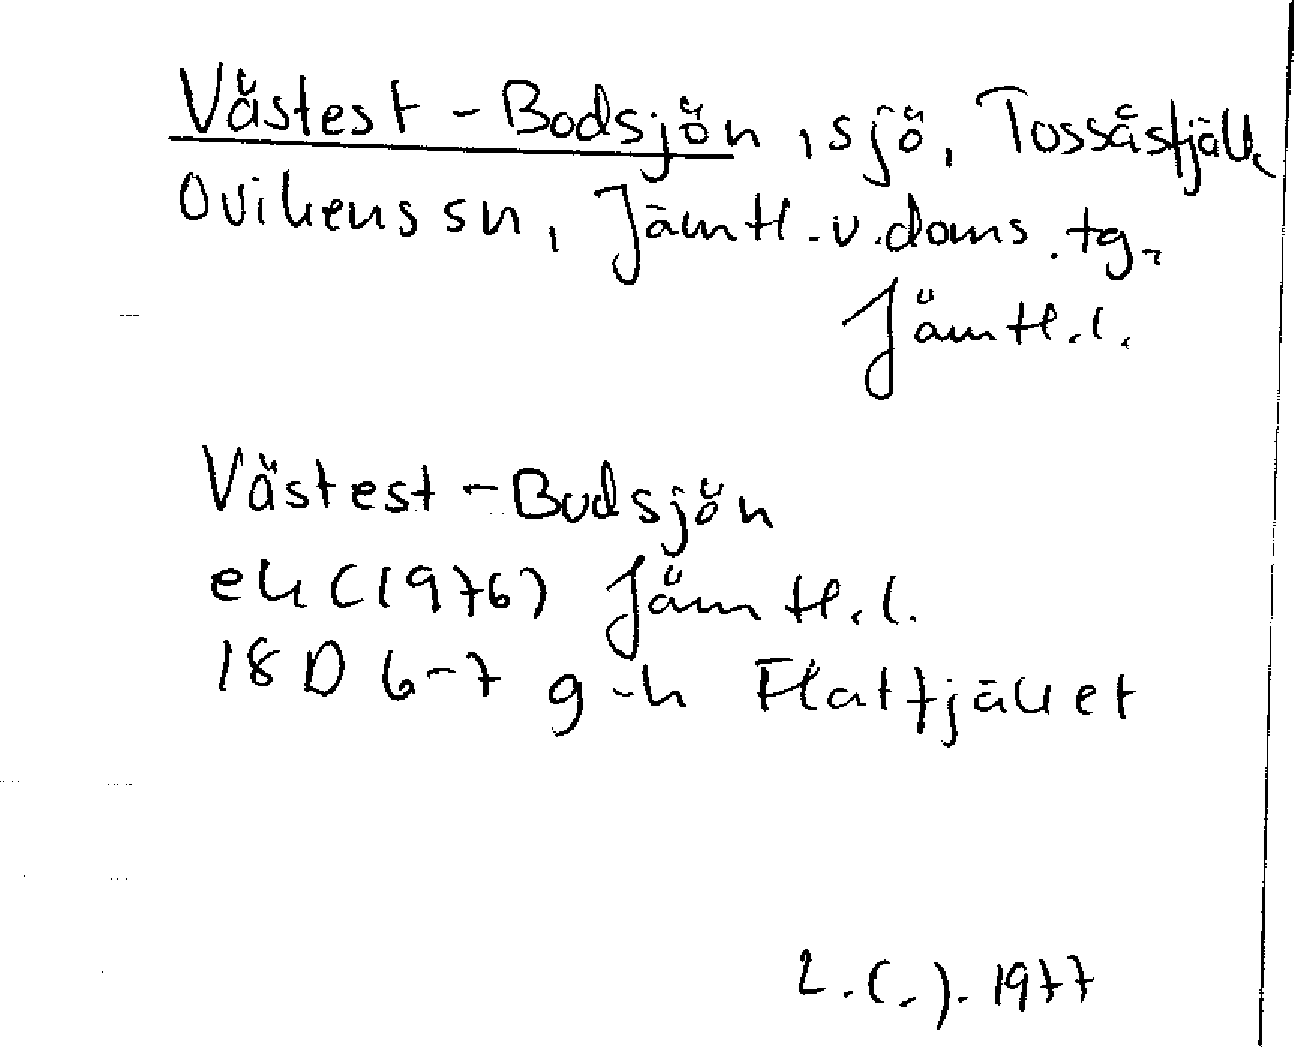 Västest-Bodsjön, sjö, Tossåsfjäll.
Ovikens sn, Jämtl.v.doms.tg.
Jämtl.l.
Västest-Budsjön
ek (1976) Jämtl.l.
18 D 6-7 g-h Flatfjället
1977